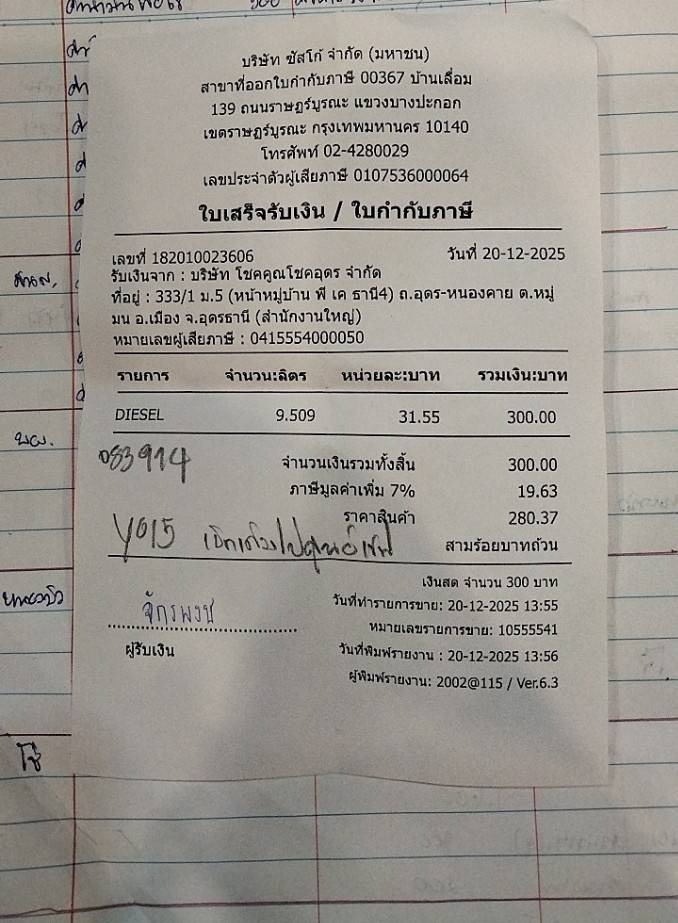 บริษัท ซัสโก้ จำกัด (มหาชน)
สาขาที่ออกใบกำกับภาษี 00367 บ้านเลื่อม
139 ถนนราษฎร์บูรณะ แขวงบางปะกอก
เขตราษฎร์บูรณะ กรุงเทพมหานคร 10140
โทรศัพท์ 02-4280029
เลขประจำตัวผู้เสียภาษี 0107536000064
ใบเสร็จรับเงิน / ใบกำกับภาษี
เลขที่ 182010023606 วันที่ 20-12-2025
รับเงินจาก : บริษัท โชคคูณโชคอุดร จำกัด
ที่อยู่ : 333/1 ม.5 (หน้าหมู่บ้าน พี เค ธานี4) ถ.อุดร-หนองคาย ต.หมู่
มน อ.เมือง จ.อุดรธานี (สำนักงานใหญ่)
หมายเลขผู้เสียภาษี : 0415554000050
รายการ จำนวน:ลิตร หน่วยละ:บาท รวมเงิน:บาท
DIESEL 9.509 31.55 300.00
083914
จำนวนเงินรวมทั้งสิ้น 300.00
ภาษีมูลค่าเพิ่ม 7% 19.63
ราคาสินค้า 280.37
Y015
สามร้อยบาทถ้วน
เงินสด จำนวน 300 บาท
วันที่ทำรายการขาย: 20-12-2025 13:55
หมายเลขรายการขาย: 10555541
วันที่พิมพ์รายงาน : 20-12-2025 13:56
ผู้พิมพ์รายงาน: 2002@115 / Ver.6.3
จักรพงษ์
ผู้รับเงิน